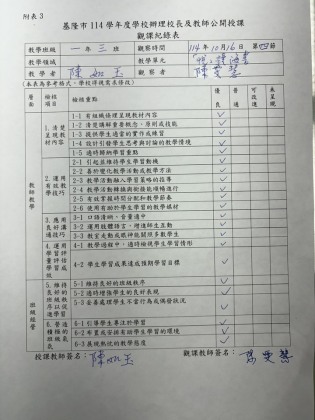 附表 3
基隆市 114 學年度學校辦理校長及教師公開授課
觀課紀錄表
教學班級 一年三班 觀察時間 114年10月16日 第四節
教學領域 教學單元
教學者 陳如玉 觀察者 陳雯慧
(本表為參考格式,學校得視需求修改)
層面 檢核項目 檢核重點 優良 普通 可改進 未呈現
教師教學
1.清楚呈現教材內容
1-1 有組織條理呈現教材內容 ✓
1-2 清楚講解重要概念、原則或技能 ✓
1-3 提供學生適當的實作或練習 ✓
1-4 設計引發學生思考與討論的教學情境 ✓
1-5 適時歸納學習重點 ✓
2.運用有效教學技巧
2-1 引起並維持學生學習動機 ✓
2-2 善於變化教學活動或教學方法 ✓
2-3 教學活動融入學習策略的指導 ✓
2-4 教學活動轉換與銜接能順暢進行 ✓
2-5 有效掌握時間分配和教學節奏 ✓
2-6 使用有助於學生學習的教學媒材 ✓
3.應用良好溝通技巧
3-1 口語清晰、音量適中 ✓
3-2 運用肢體語言,增進師生互動 ✓
3-3 教室走動或眼神能關照多數學生 ✓
4.運用學習評量評估學習成效
4-1 教學過程中,適時檢視學生學習情形 ✓
4-2 學生學習成果達成預期學習目標 ✓
班級經營
5.維持良好的班級秩序以促進學習
5-1 維持良好的班級秩序 ✓
5-2 適時增強學生的良好表現 ✓
5-3 妥善處理學生不當行為或偶發狀況 ✓
6.營造積極的班級氣氛
6-1 引導學生專注於學習 ✓
6-2 布置或安排有助學生學習的環境 ✓
6-3 展現熱忱的教學態度 ✓
授課教師簽名: 陳如玉 觀課教師簽名: 陳雯慧